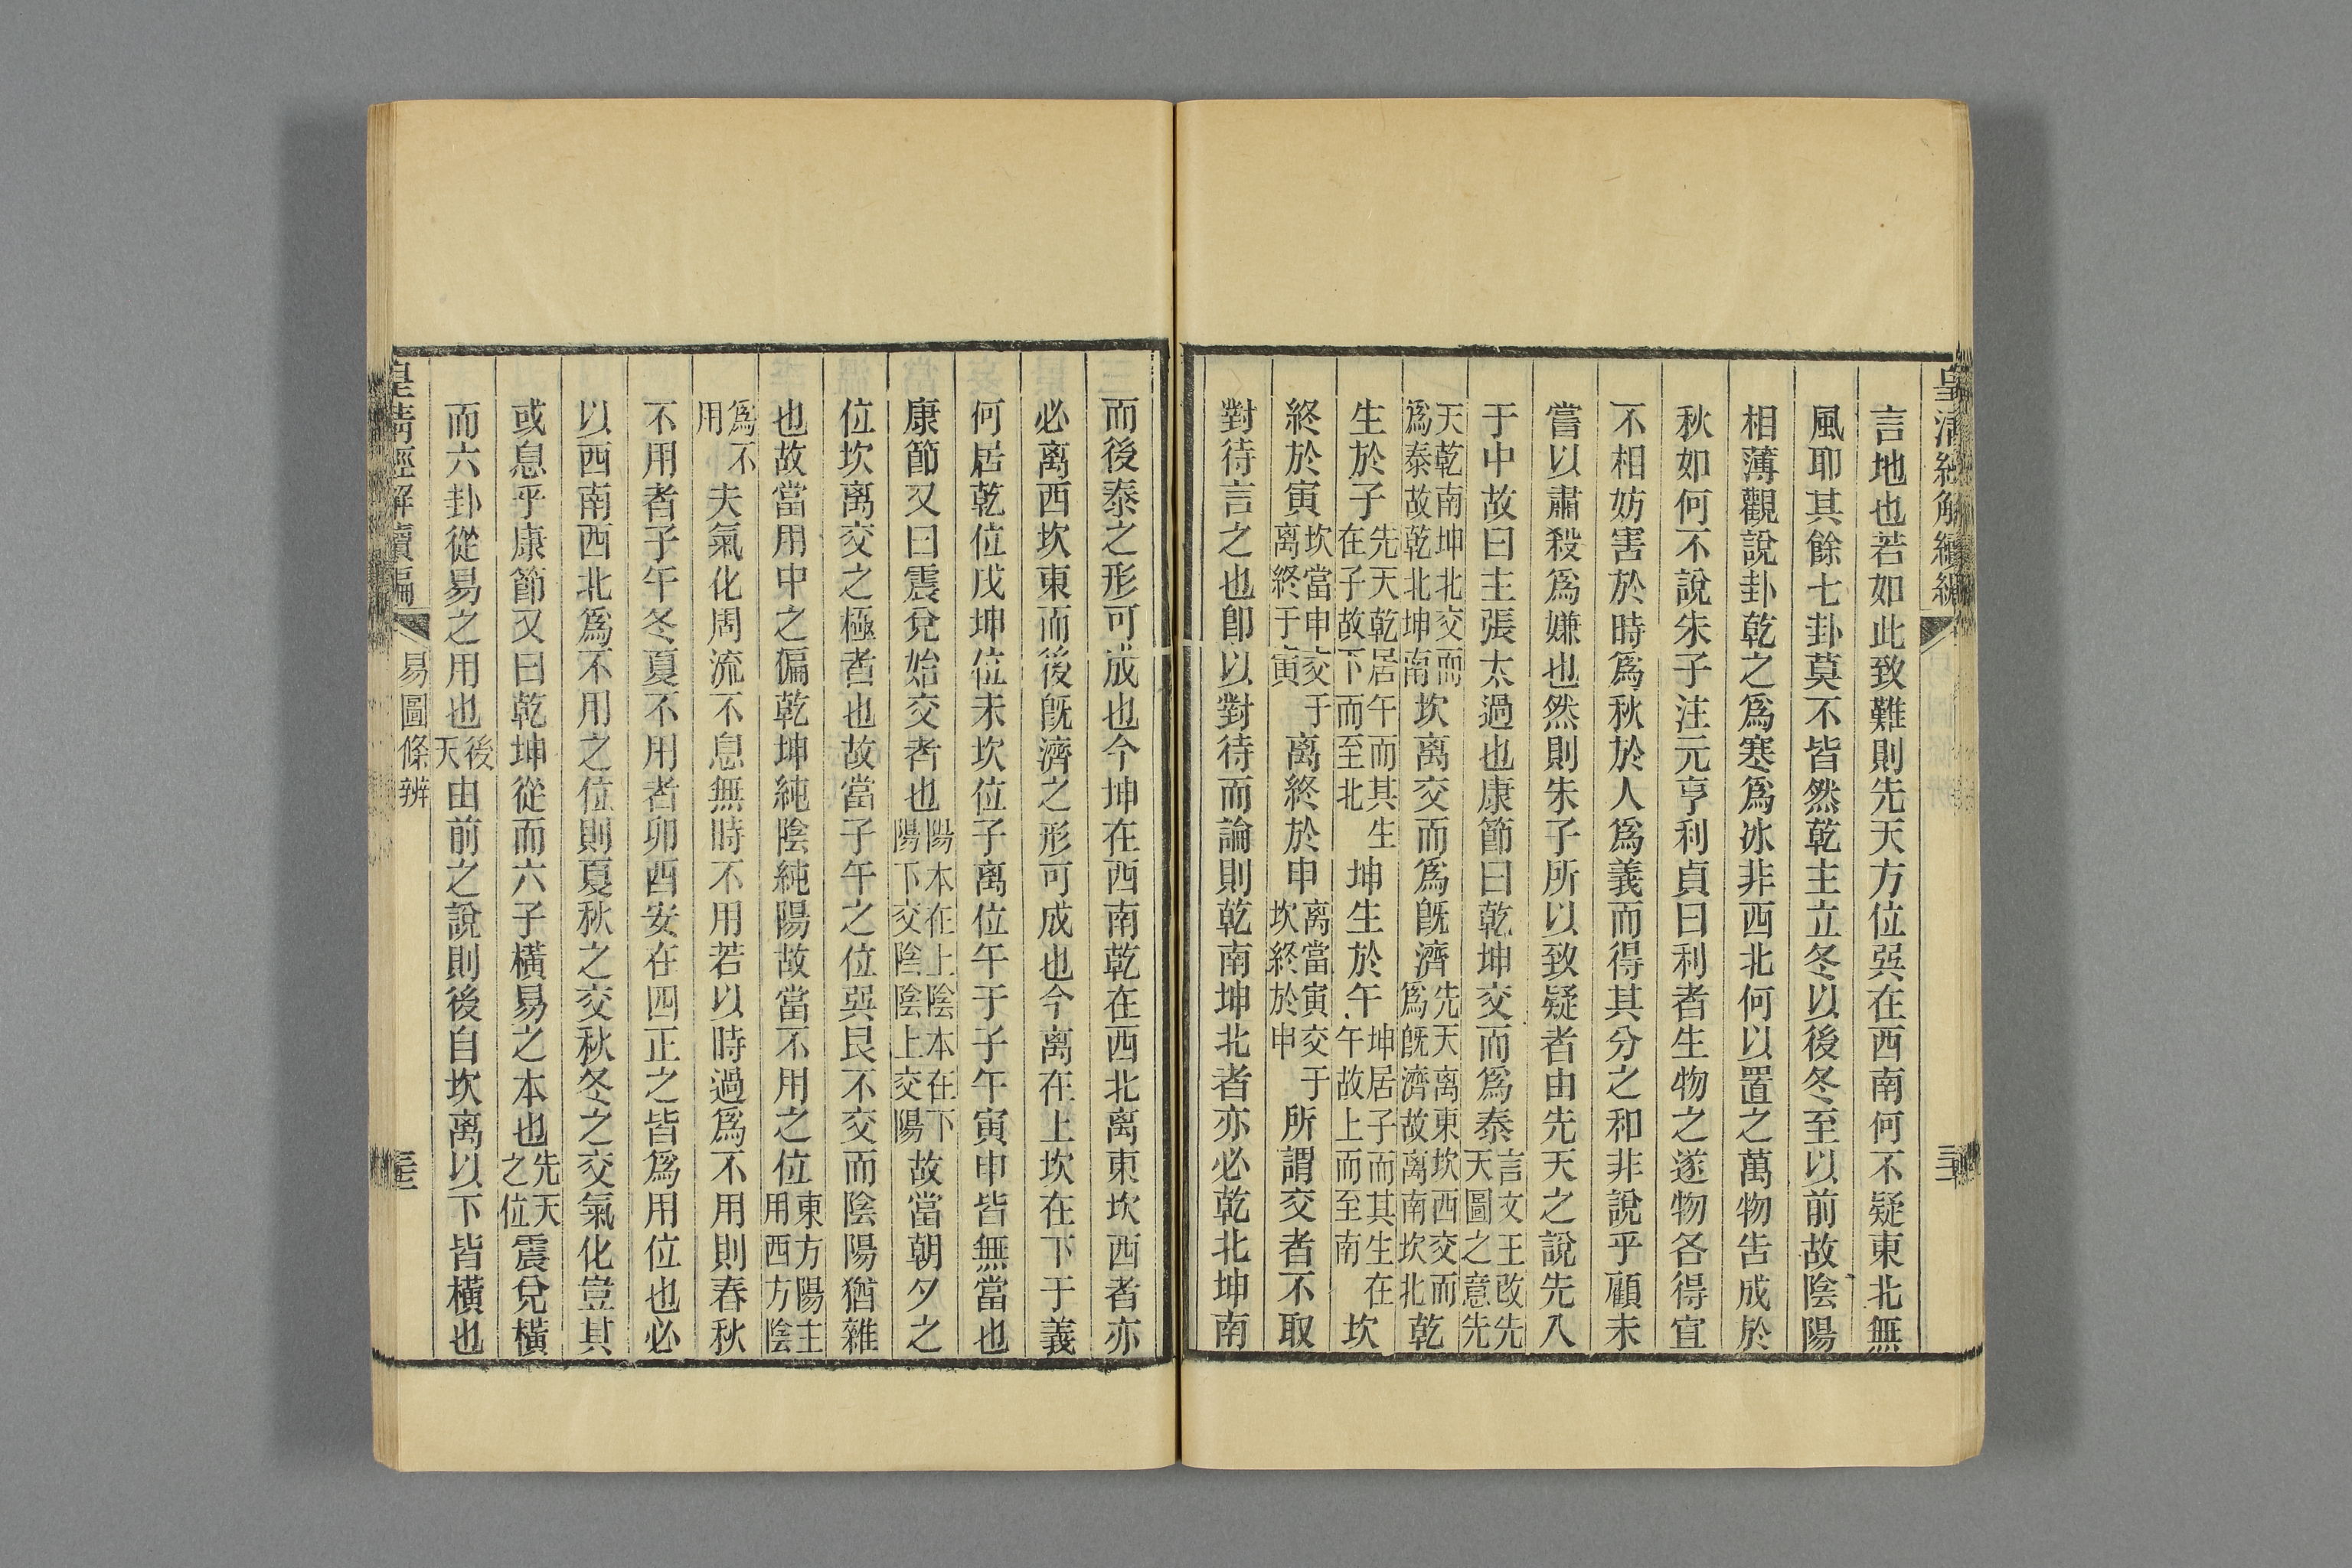 言地也若如此致難則先天方位巽在西南何不疑東北無
風耶其餘七卦莫不皆然乾主立冬以後冬至以前故陰陽
相薄觀說卦乾之爲寒爲冰非西北何以置之萬物告成於
秋如何不說朱子注元亨利貞曰利者生物之遂物各得宜
不相妨害於時爲秋於人爲義而得其分之和非說乎顧未
嘗以肅殺爲嫌也然則朱子所以致疑者由先天之說先入
于中故曰主張太過也康節曰乾坤交而爲泰言文王改先天圖之意先
天乾南坤北交而爲泰故乾北坤南坎离交而爲旣濟先天离東坎西交而爲旣濟故离南坎北乾
生於子先天乾居午而其生在子故下而至北坤生於午坤居子而其生在午故上而至南坎
終於寅坎當申交于离終于寅离終於申离當寅交于坎終於申所謂交者不取
對待言之也卽以對待而論則乾南坤北者亦必乾北坤南
而後泰之形可成也今坤在西南乾在西北离東坎西者亦
必离西坎東而後旣濟之形可成也今离在上坎在下于義
何居乾位戌坤位未坎位子离位午于子午寅申皆無當也
康節又曰震兌始交者也陽本在上陰本在下陽下交陰陰上交陽故當朝夕之
位坎离交之極者也故當子午之位巽艮不交而陰陽猶雜
也故當用中之偏乾坤純陰純陽故當不用之位東方陽主用西方陰
爲不用夫氣化周流不息無時不用若以時過爲不用則春秋
不用者子午冬夏不用者卯酉安在四正之皆爲用位也必
以西南西北爲不用之位則夏秋之交秋冬之交氣化豈其
或息乎康節又曰乾坤從而六子橫易之本也先天之位震兌橫
而六卦從易之用也後天由前之說則後自坎离以下皆橫也
皇清經解續編
易圖條辨